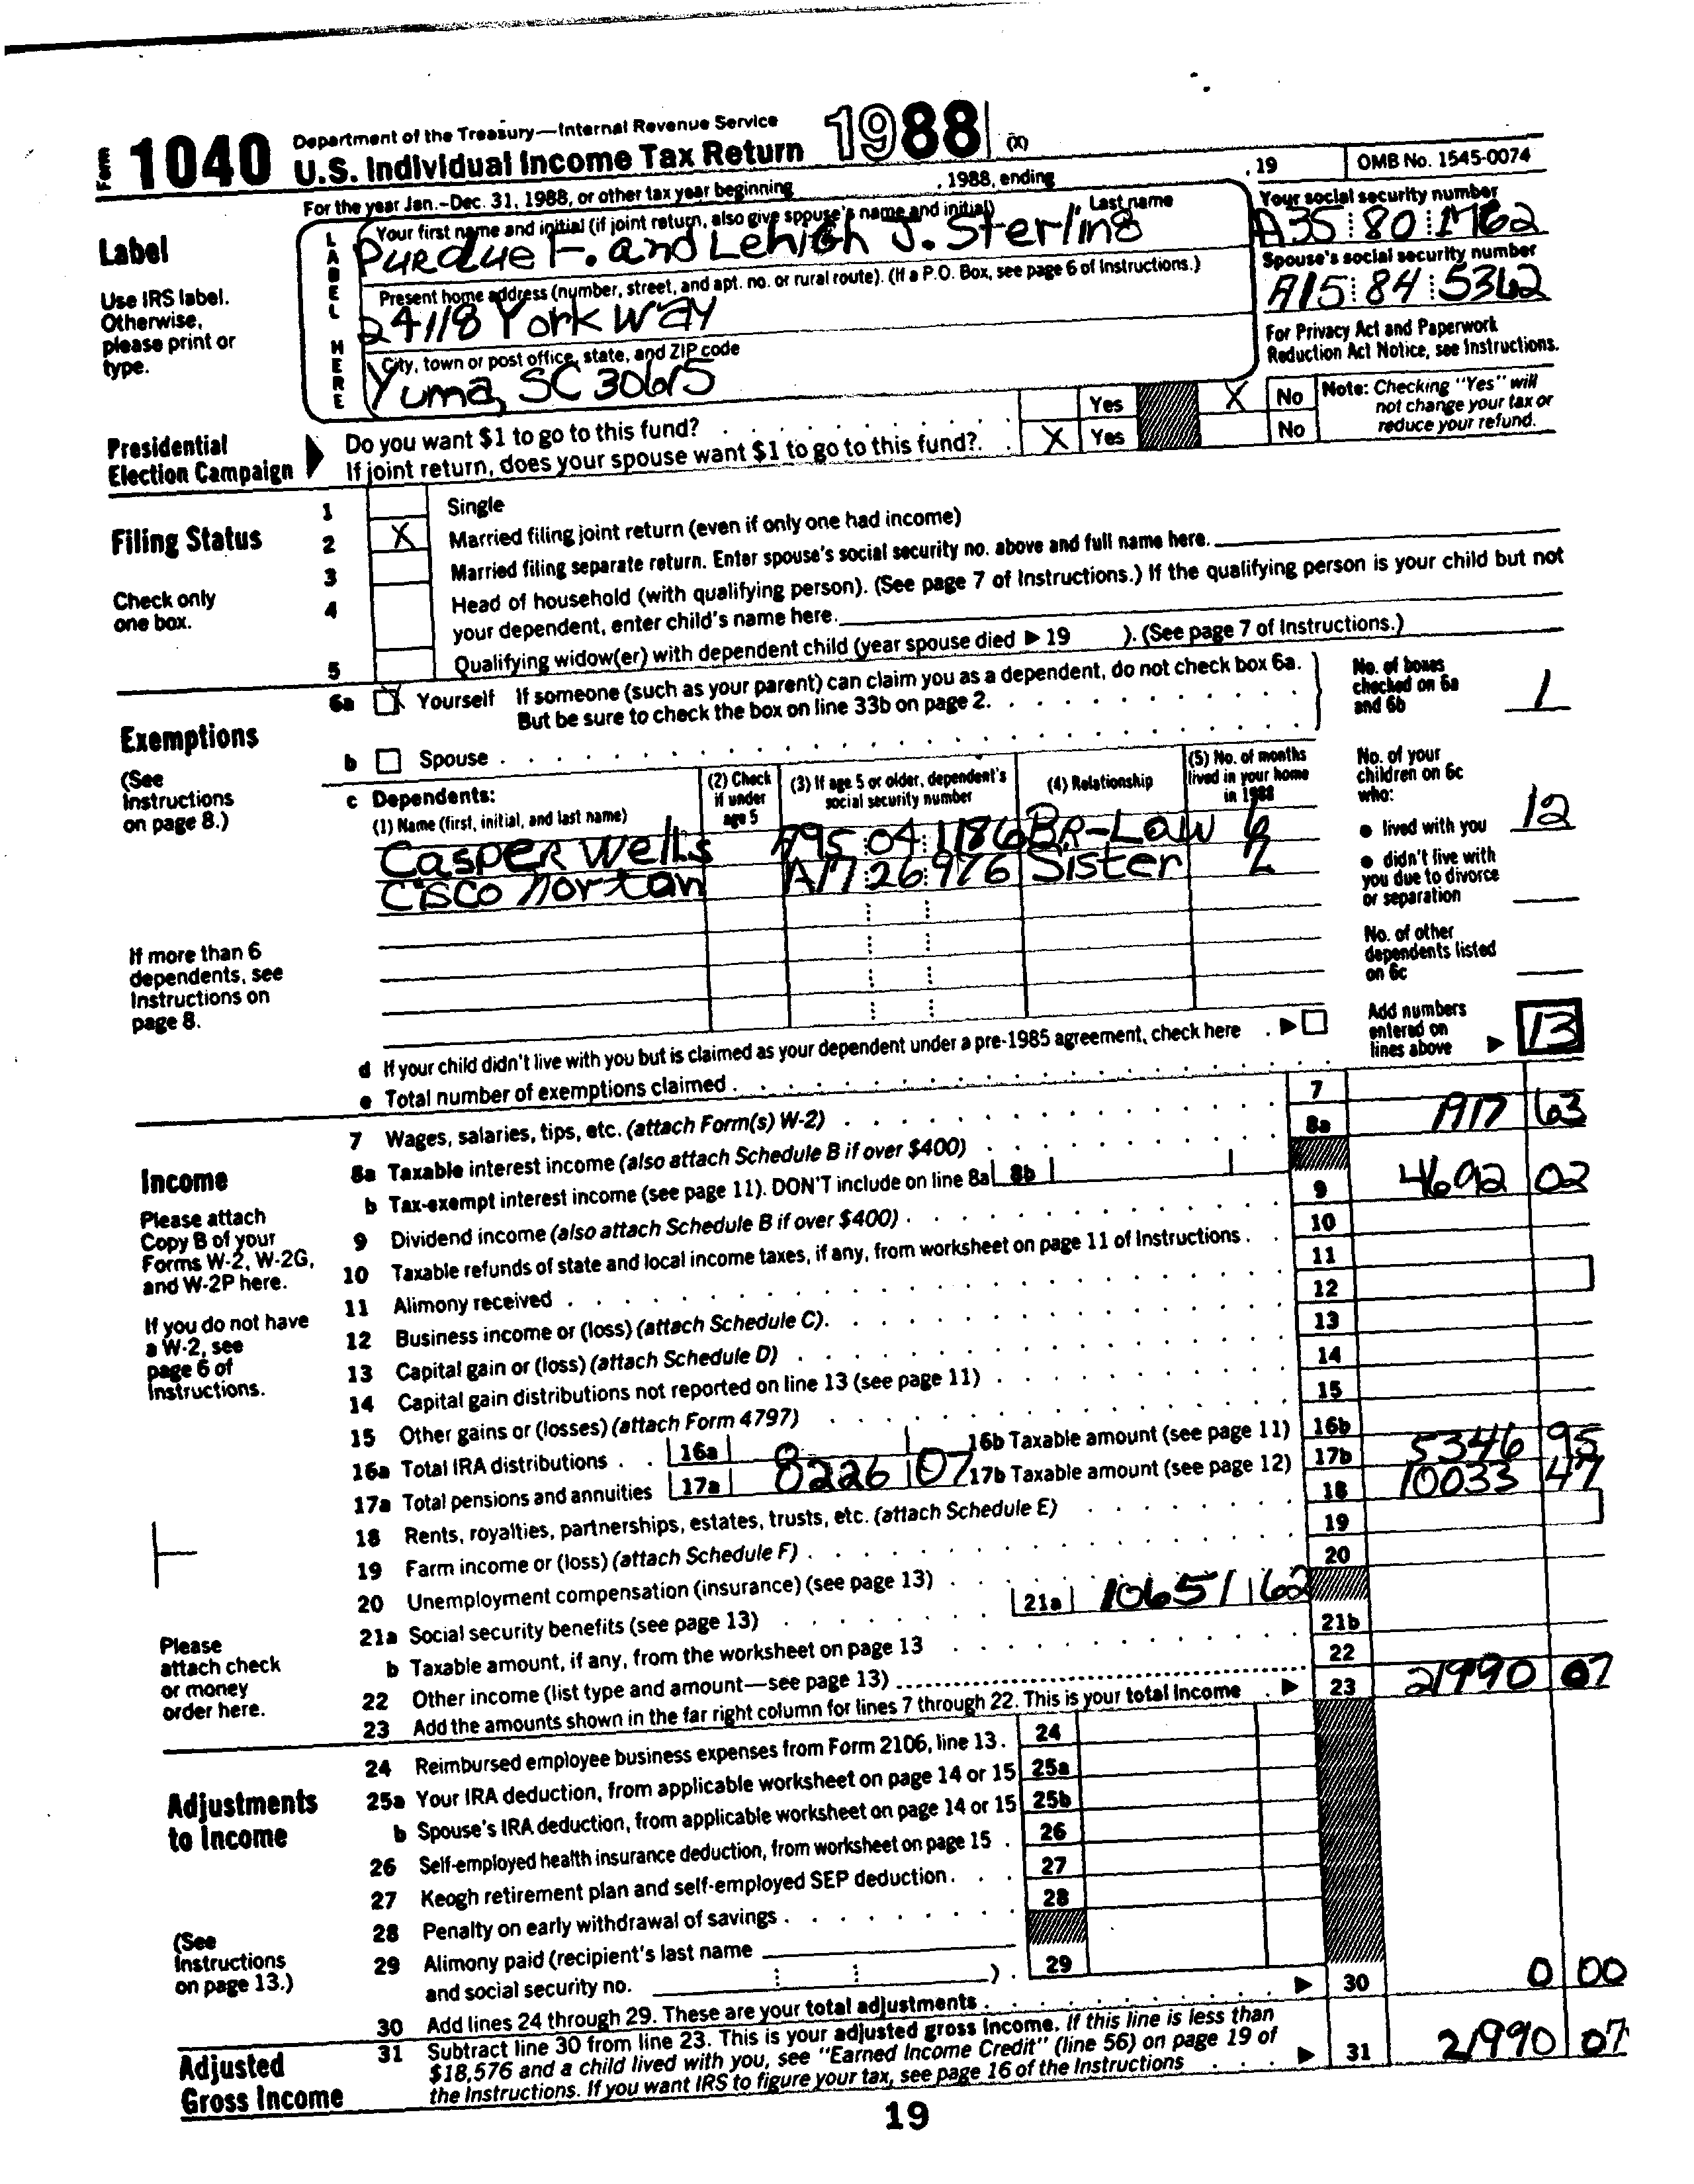 Form 1040 Department of the Treasury—Internal Revenue Service
U.S. Individual Income Tax Return 1988 (X)
For the year Jan.-Dec. 31, 1988, or other tax year beginning , 1988, ending , 19 OMB No. 1545-0074
Label
Use IRS label.
Otherwise,
please print or
type.
LABEL HERE
Your first name and initial (if joint return, also give spouse's name and initial) Last name
Purdue F. and Lehigh J. Sterling
Your social security number
A35 80 1762
Present home address (number, street, and apt. no. or rural route). (If a P.O. Box, see page 6 of Instructions.)
24118 York Way
Spouse's social security number
A15 84 5362
City, town or post office, state, and ZIP code
Yuma, SC 30615
For Privacy Act and Paperwork
Reduction Act Notice, see Instructions.
Presidential
Election Campaign
Do you want $1 to go to this fund? Yes X No
If joint return, does your spouse want $1 to go to this fund? X Yes No
Note: Checking "Yes" will
not change your tax or
reduce your refund.
Filing Status
Check only
one box.
1 Single
2 X Married filing joint return (even if only one had income)
3 Married filing separate return. Enter spouse's social security no. above and full name here.
4 Head of household (with qualifying person). (See page 7 of Instructions.) If the qualifying person is your child but not
your dependent, enter child's name here.
5 Qualifying widow(er) with dependent child (year spouse died ▶ 19 ). (See page 7 of Instructions.)
Exemptions
(See
Instructions
on page 8.)
6a X Yourself If someone (such as your parent) can claim you as a dependent, do not check box 6a.
But be sure to check the box on line 33b on page 2.
b Spouse
No. of boxes
checked on 6a
and 6b 1
c Dependents:
(1) Name (first, initial, and last name)
(2) Check
if under
age 5
(3) If age 5 or older, dependent's
social security number
(4) Relationship
(5) No. of months
lived in your home
in 1988
Casper Wells A95 04 1186 BR-Law 6
Cisco Norton A17 26 976 Sister
No. of your
children on 6c
who:
● lived with you 12
● didn't live with
you due to divorce
or separation
No. of other
dependents listed
on 6c
If more than 6
dependents, see
Instructions on
page 8.
d If your child didn't live with you but is claimed as your dependent under a pre-1985 agreement, check here ▶
e Total number of exemptions claimed
Add numbers
entered on
lines above ▶ 13
Income
Please attach
Copy B of your
Forms W-2, W-2G,
and W-2P here.
If you do not have
a W-2, see
page 6 of
Instructions.
Please
attach check
or money
order here.
7 Wages, salaries, tips, etc. (attach Form(s) W-2) 7
8a Taxable interest income (also attach Schedule B if over $400) 8a 1917 63
b Tax-exempt interest income (see page 11). DON'T include on line 8a 8b
9 Dividend income (also attach Schedule B if over $400) 9 4692 02
10 Taxable refunds of state and local income taxes, if any, from worksheet on page 11 of Instructions 10
11 Alimony received 11
12 Business income or (loss) (attach Schedule C) 12
13 Capital gain or (loss) (attach Schedule D) 13
14 Capital gain distributions not reported on line 13 (see page 11) 14
15 Other gains or (losses) (attach Form 4797) 15
16a Total IRA distributions 16a 16b Taxable amount (see page 11) 16b
17a Total pensions and annuities 17a 8226 07 17b Taxable amount (see page 12) 17b 5346 95
18 Rents, royalties, partnerships, estates, trusts, etc. (attach Schedule E) 18 10033 47
19 Farm income or (loss) (attach Schedule F) 19
20 Unemployment compensation (insurance) (see page 13) 20
21a Social security benefits (see page 13) 21a 10651 62
b Taxable amount, if any, from the worksheet on page 13 21b
22 Other income (list type and amount—see page 13) 22
23 Add the amounts shown in the far right column for lines 7 through 22. This is your total income ▶ 23 21990 07
Adjustments
to Income
(See
Instructions
on page 13.)
24 Reimbursed employee business expenses from Form 2106, line 13. 24
25a Your IRA deduction, from applicable worksheet on page 14 or 15 25a
b Spouse's IRA deduction, from applicable worksheet on page 14 or 15 25b
26 Self-employed health insurance deduction, from worksheet on page 15 26
27 Keogh retirement plan and self-employed SEP deduction 27
28 Penalty on early withdrawal of savings 28
29 Alimony paid (recipient's last name
and social security no. ) 29
30 Add lines 24 through 29. These are your total adjustments ▶ 30 0 00
Adjusted
Gross Income
31 Subtract line 30 from line 23. This is your adjusted gross income. If this line is less than
$18,576 and a child lived with you, see "Earned Income Credit" (line 56) on page 19 of
the Instructions. If you want IRS to figure your tax, see page 16 of the Instructions ▶ 31 21990 07
19